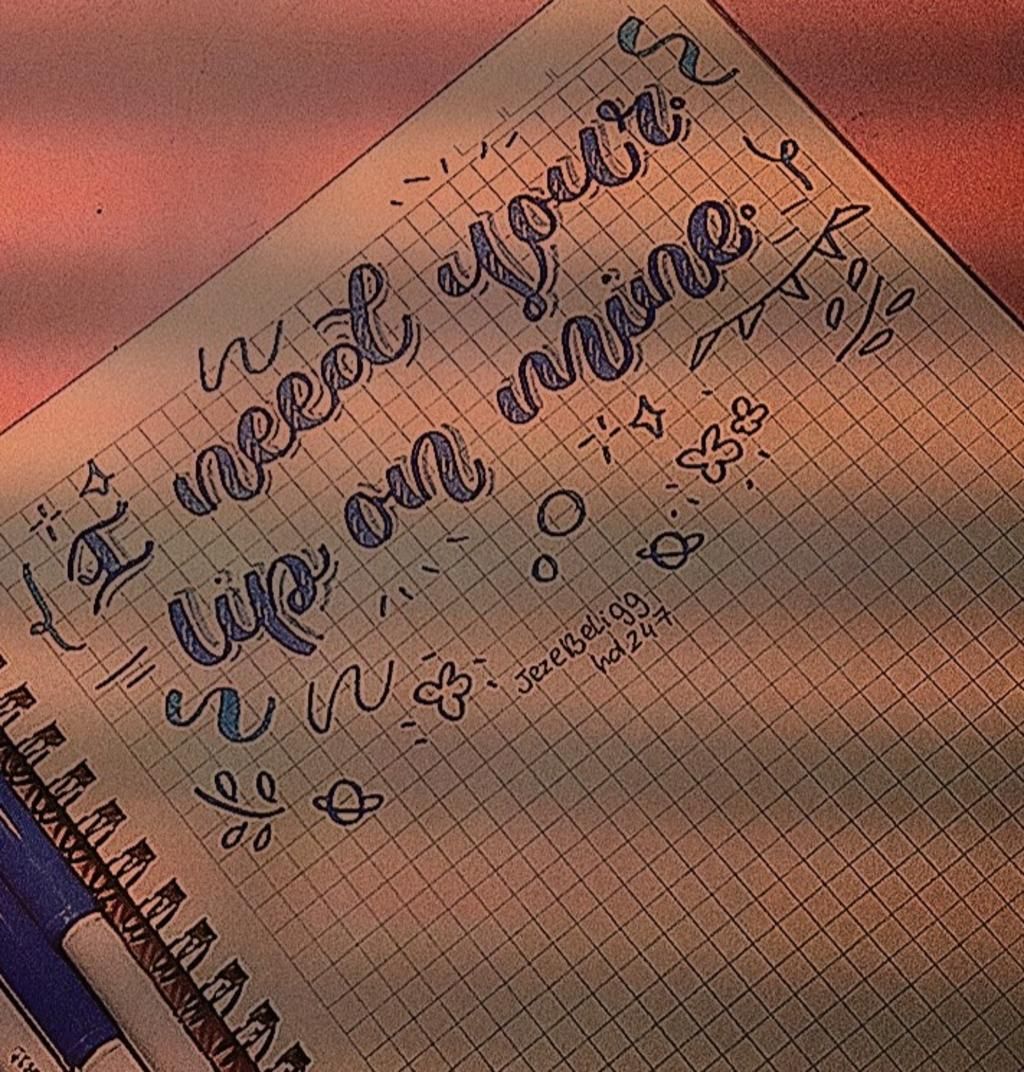 I need your
lip on mine
JezeBeli99
hd.247